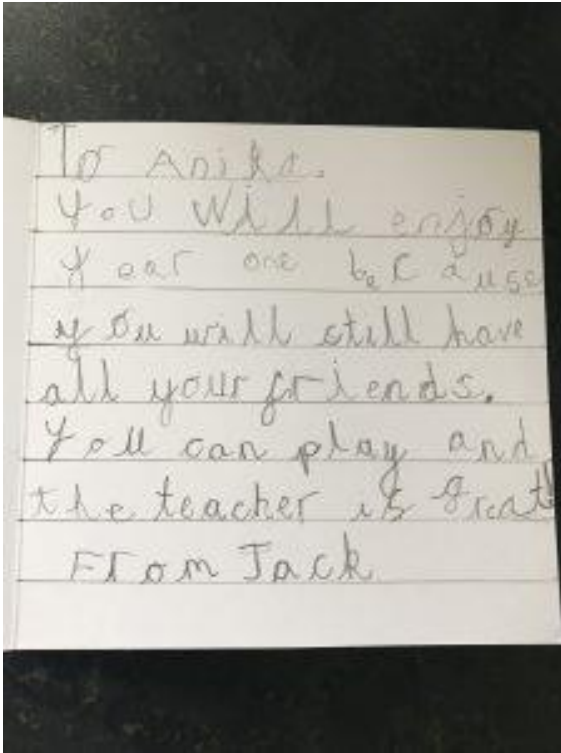 To Anika.
You Will enjoy
Year one because
you will still have
all your friends.
You can play and
the teacher is great!
From Jack